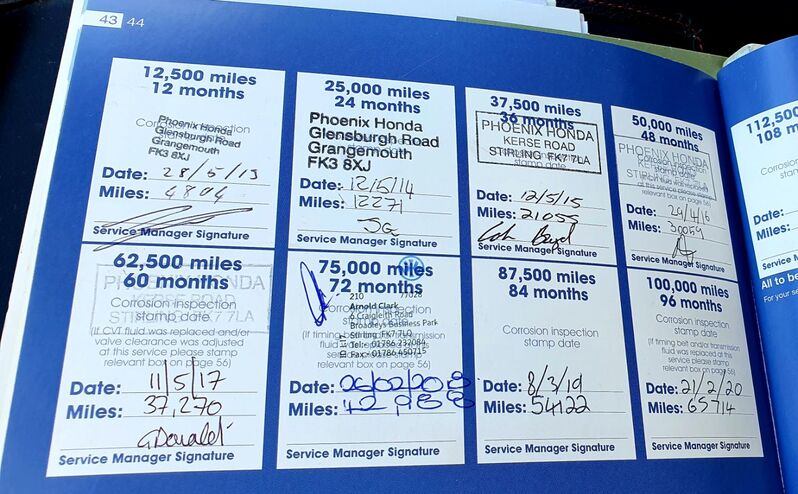 43 44
12,500 miles
12 months
Corrosion inspection
Phoenix Honda
Glensburgh Road
Grangemouth
FK3 8XJ
Date: 28/5/13
Miles: 4804
Service Manager Signature
25,000 miles
24 months
Phoenix Honda
Glensburgh Road
Grangemouth
FK3 8XJ
Date: 12/5/14
Miles: 12271
Service Manager Signature
37,500 miles
36 months
PHOENIX HONDA
KERSE ROAD
STIRLING FK7 7LA
stamp date
Date: 12/5/15
Miles: 21055
Service Manager Signature
50,000 miles
48 months
PHOENIX HONDA
Corrosion inspection
stamp date
relevant box on page 56)
Date: 29/4/16
Miles: 30059
Service Manager Signature
62,500 miles
60 months
PHOENIX HONDA
KERSE ROAD
STIRLING FK7 7LA
Corrosion inspection
stamp date
(If CVT fluid was replaced and/or
valve clearance was adjusted
at this service please stamp
relevant box on page 56)
Date: 11/5/17
Miles: 37,270
G Donald
Service Manager Signature
75,000 miles
72 months
210 77028
Arnold Clark
6 Craigleith Road
Broadleys Business Park
Stirling FK7 7LQ
Tel: 01786 232084
Fax: 01786 450715
Date: 06/02/2018
Miles: 42,988
Service Manager Signature
87,500 miles
84 months
Corrosion inspection
stamp date
Date: 8/3/19
Miles: 54122
Service Manager Signature
100,000 miles
96 months
Corrosion inspection
stamp date
(If timing belt and/or transmission
fluid was replaced at this
service please stamp
relevant box on page 56)
Date: 21/2/20
Miles: 65714
Service Manager Signature
112,500
108 m
Corrosion
Date:
Miles:
Service M
All to be
For your se